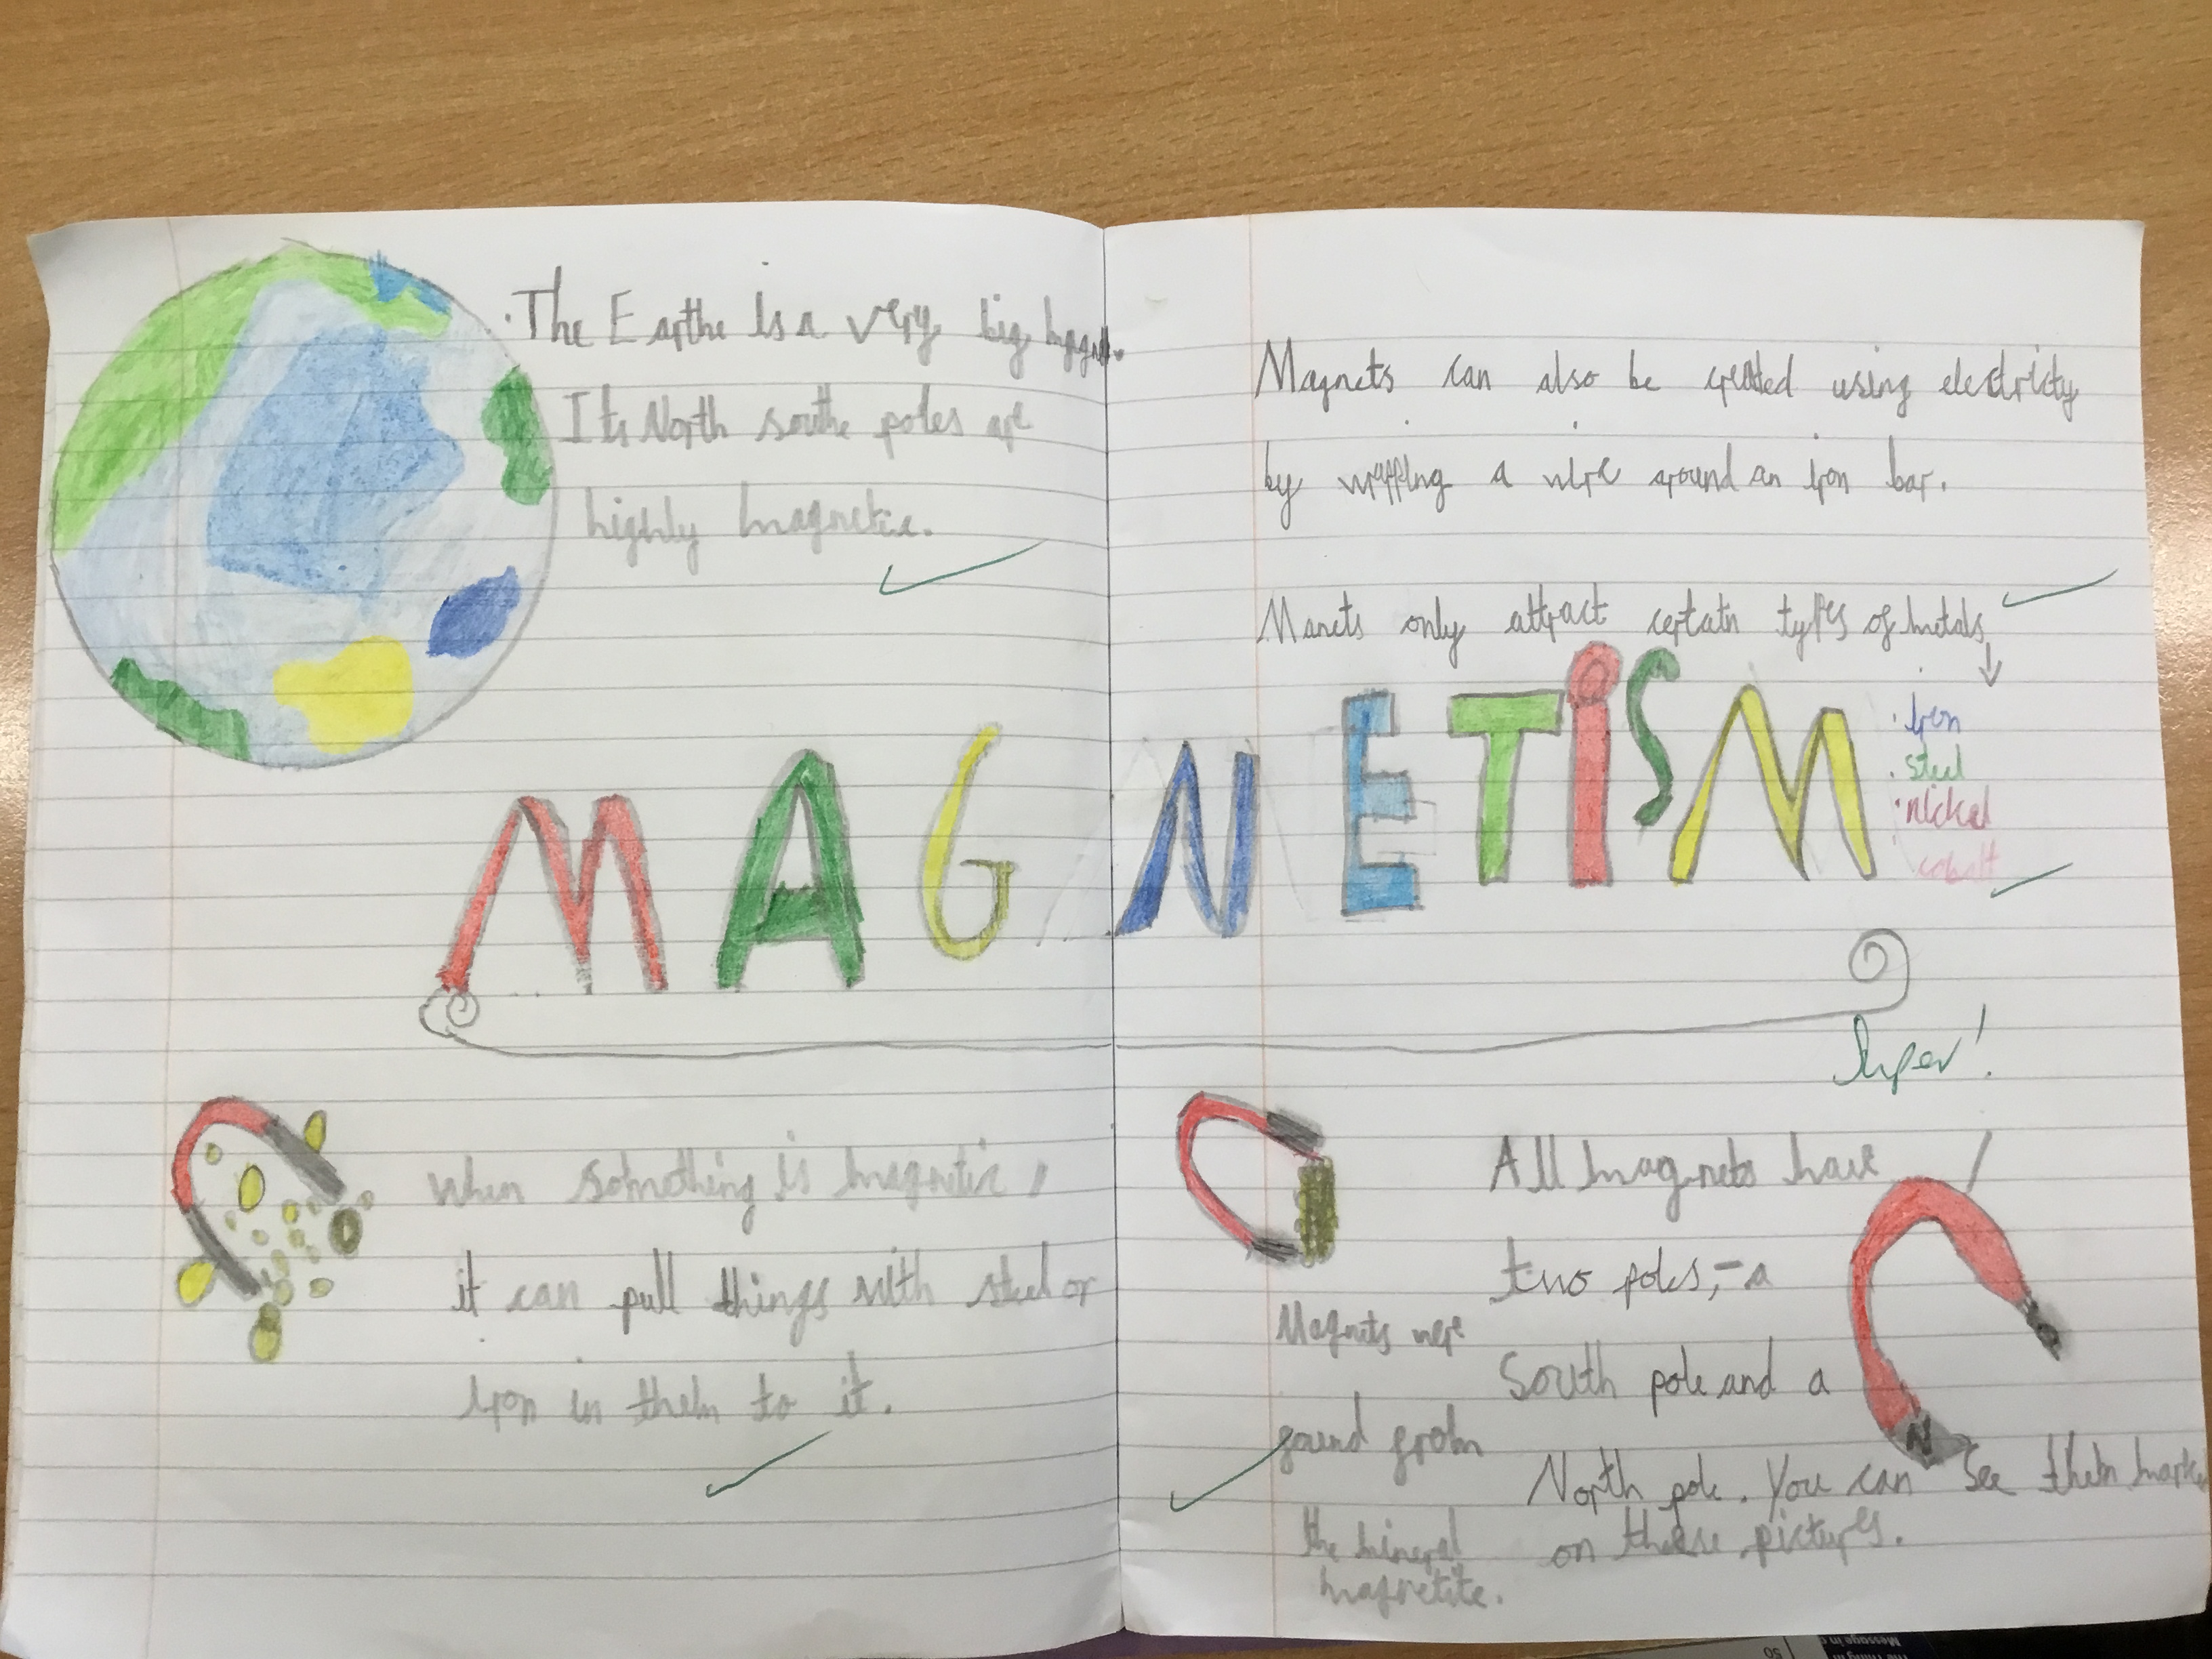 . The Earthe is a very big
Its North southe poles are
highly magnetic.
Magnets can also be created using electricity
by wrapping a wire around an iron bar.
Manets only attract certain types of metals
. iron
. steel
. nickel
. cobalt
MAGNETISM
Super!
when something is magnetic,
it can pull things with steel or
iron in them to it.
Magnets were
found from
the mineral
magnetite.
All magnets have
two poles, - a
South pole and a
North pole. You can see them
on these pictures.
N
50
Message in a